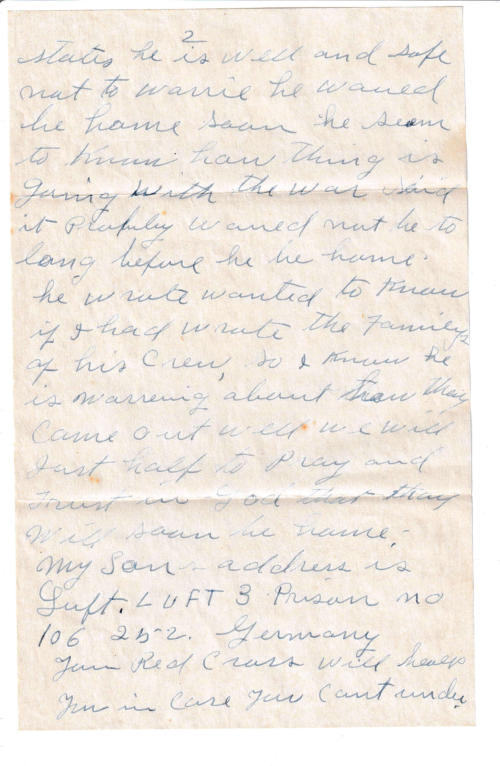 2
states he is well and safe
not to warrie he woued
be home soon he seem
to Know how thing is
going with the war said
it probuly woued not be to
long before he be home.
he wrote wanted to Know
if I had wrote the Familys
of his Crew, so I Know he
is warreing about how thay
Came out well we will
Just half to Pray and
trust in God that thay
will soon be home.
My Son - address is
Luft. LUFT 3 Prison no
106 252. Germany
Your Red Cross will healp
You in Case You Cant under